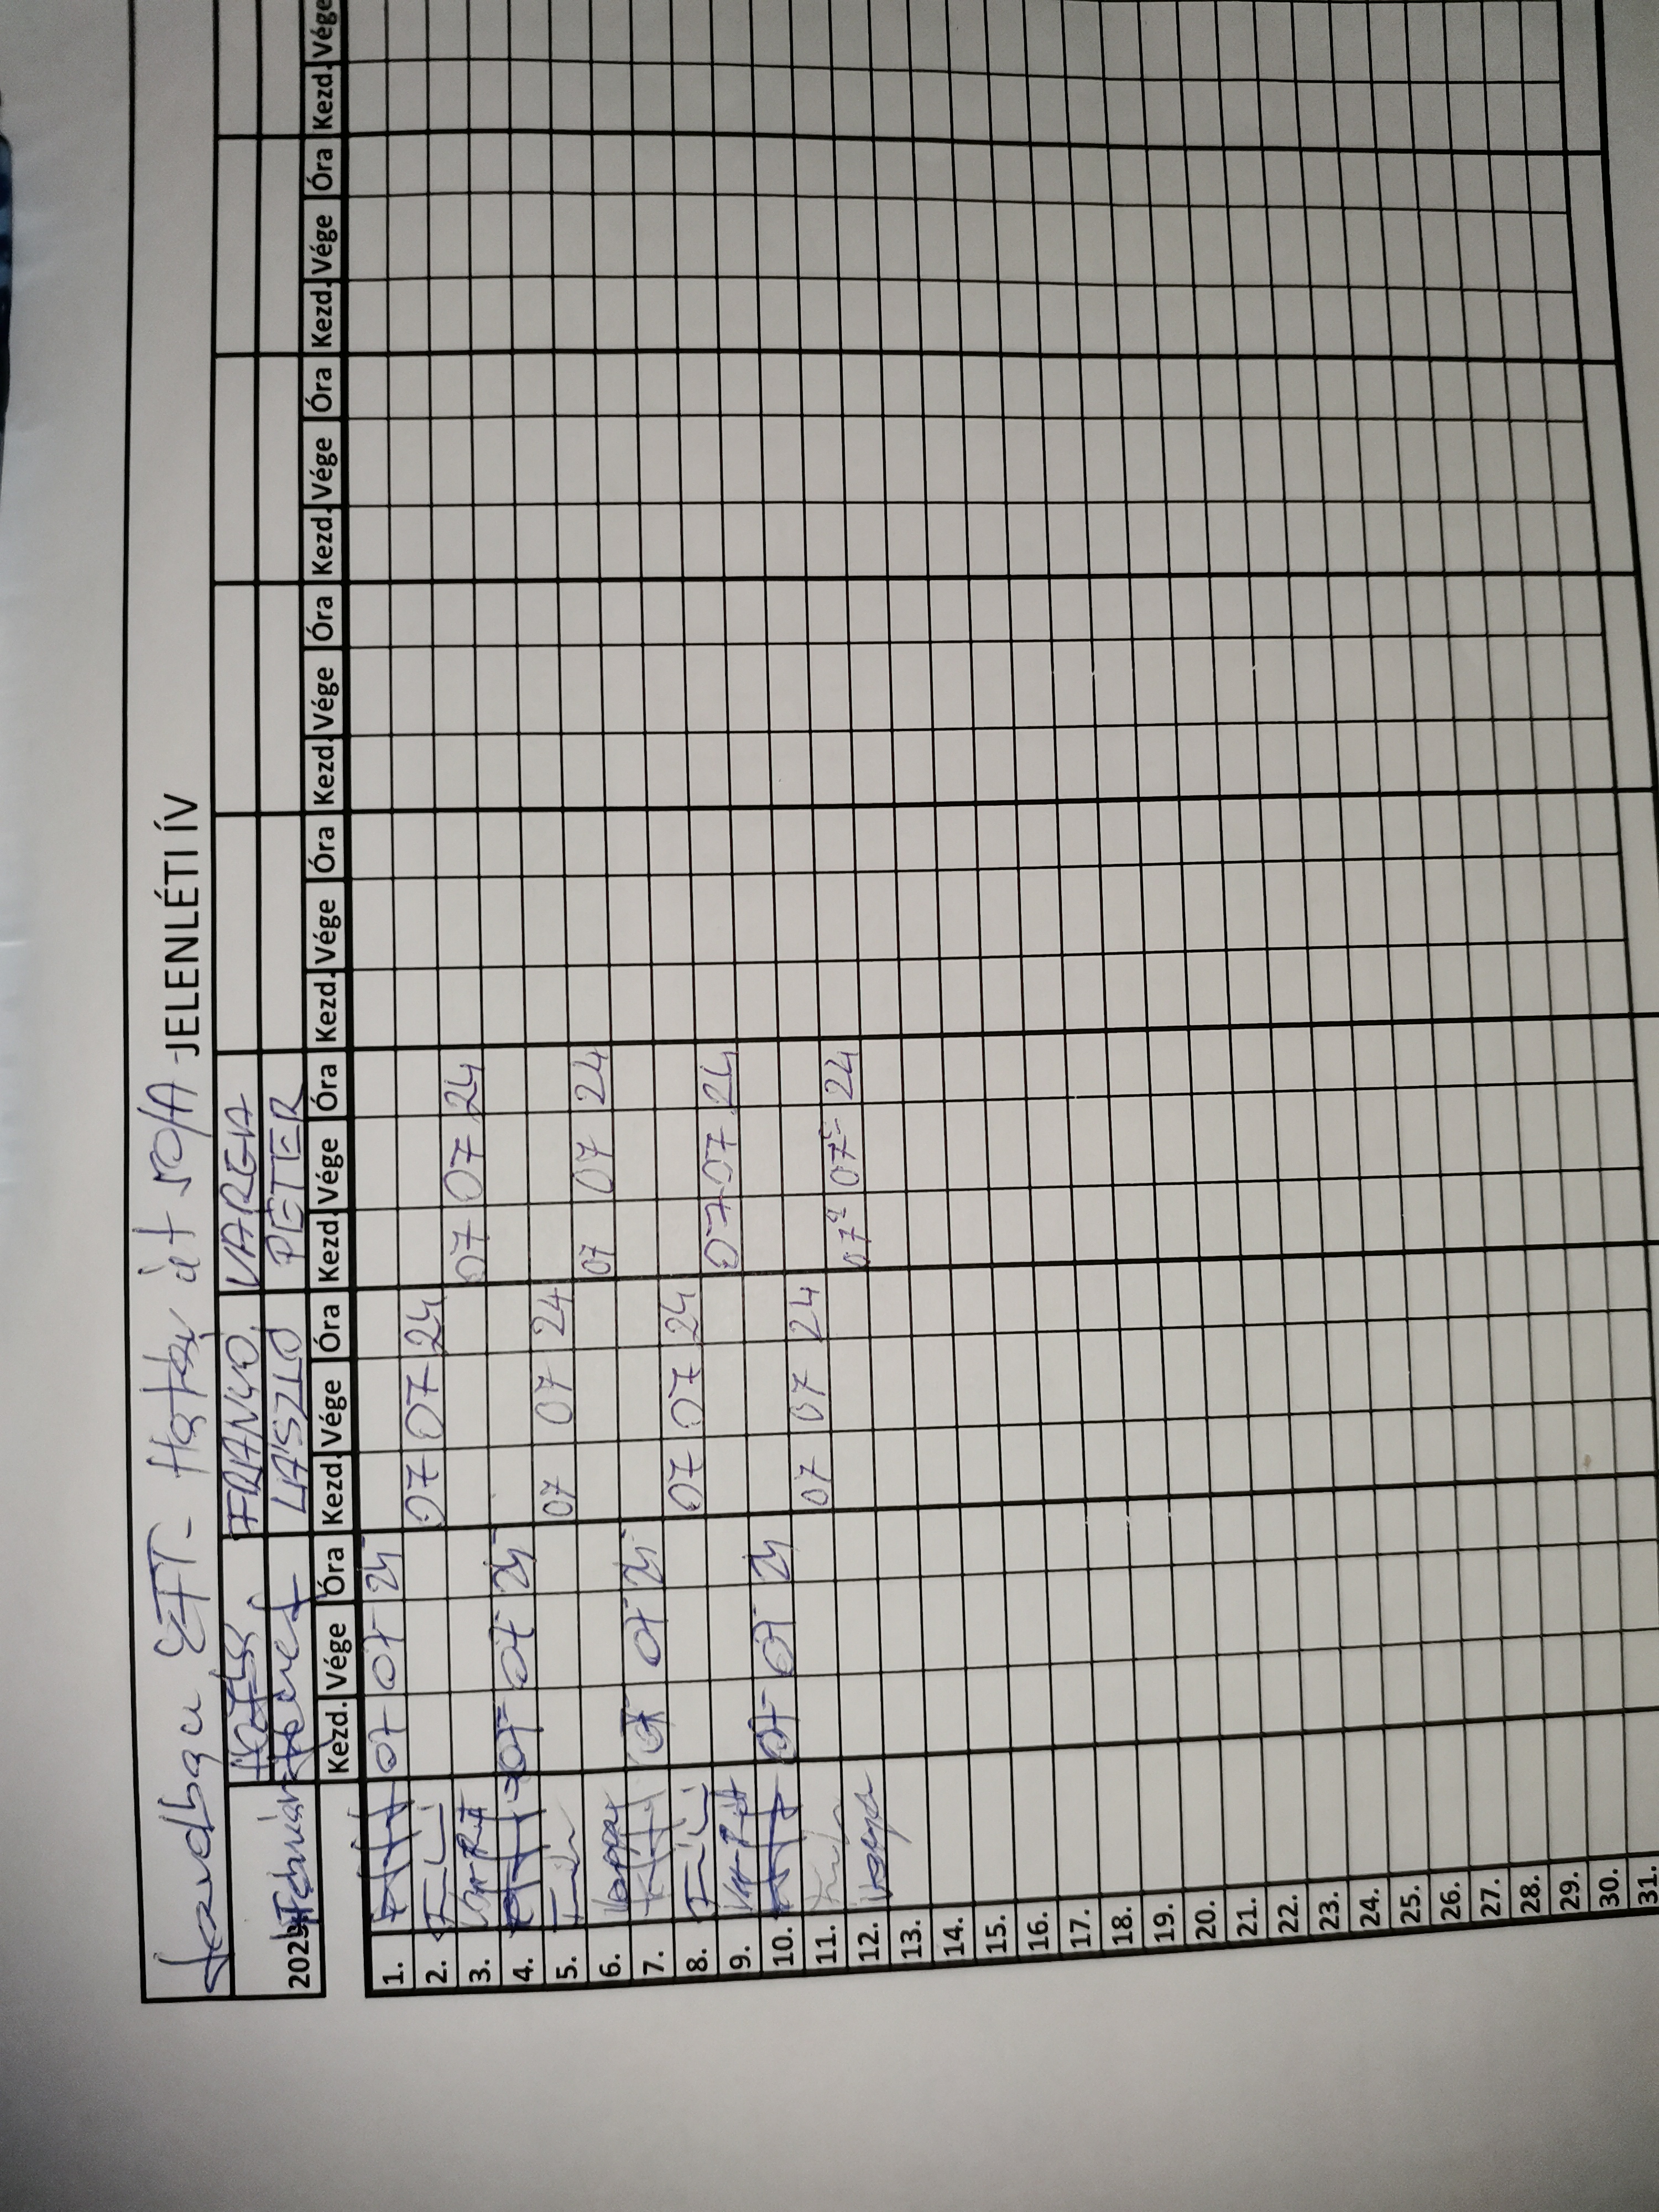 ZFT- Határ út 50/A -JELENLÉTI ÍV
FRANKO VARGA
2025. Február LÁSZLÓ PÉTER
Kezd. Vége Óra Kezd. Vége Óra Kezd. Vége Óra Kezd. Vége Óra Kezd. Vége Óra Kezd. Vége Óra Kezd. Vége Óra Kezd. Vége
1. 07 07 24
2. 07 07 24
3. 07 07 24
4. 07 07 24
5. 07 07 24
6. 07 07 24
7. 07 07 24
8. 07 07 24
9. 07 07 24
10. 07 07 24
11. 07 07 24
12. 07 07 24
13.
14.
15.
16.
17.
18.
19.
20.
21.
22.
23.
24.
25.
26.
27.
28.
29.
30.
31.